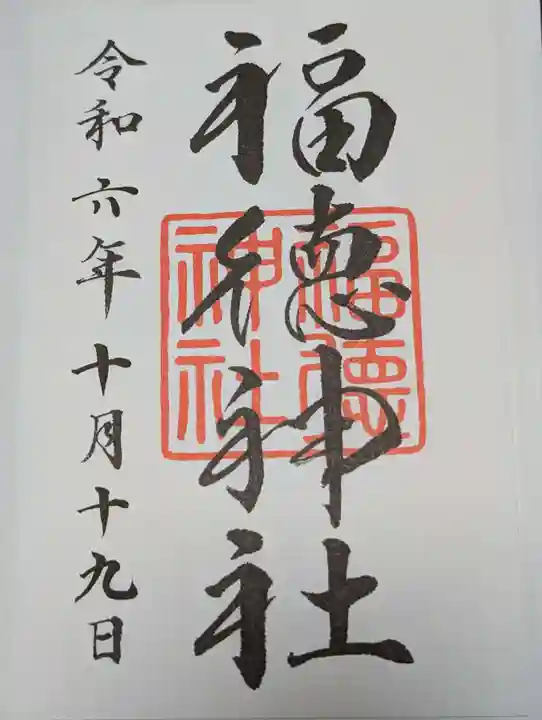 福徳神社
福徳神社
令和六年十月十九日